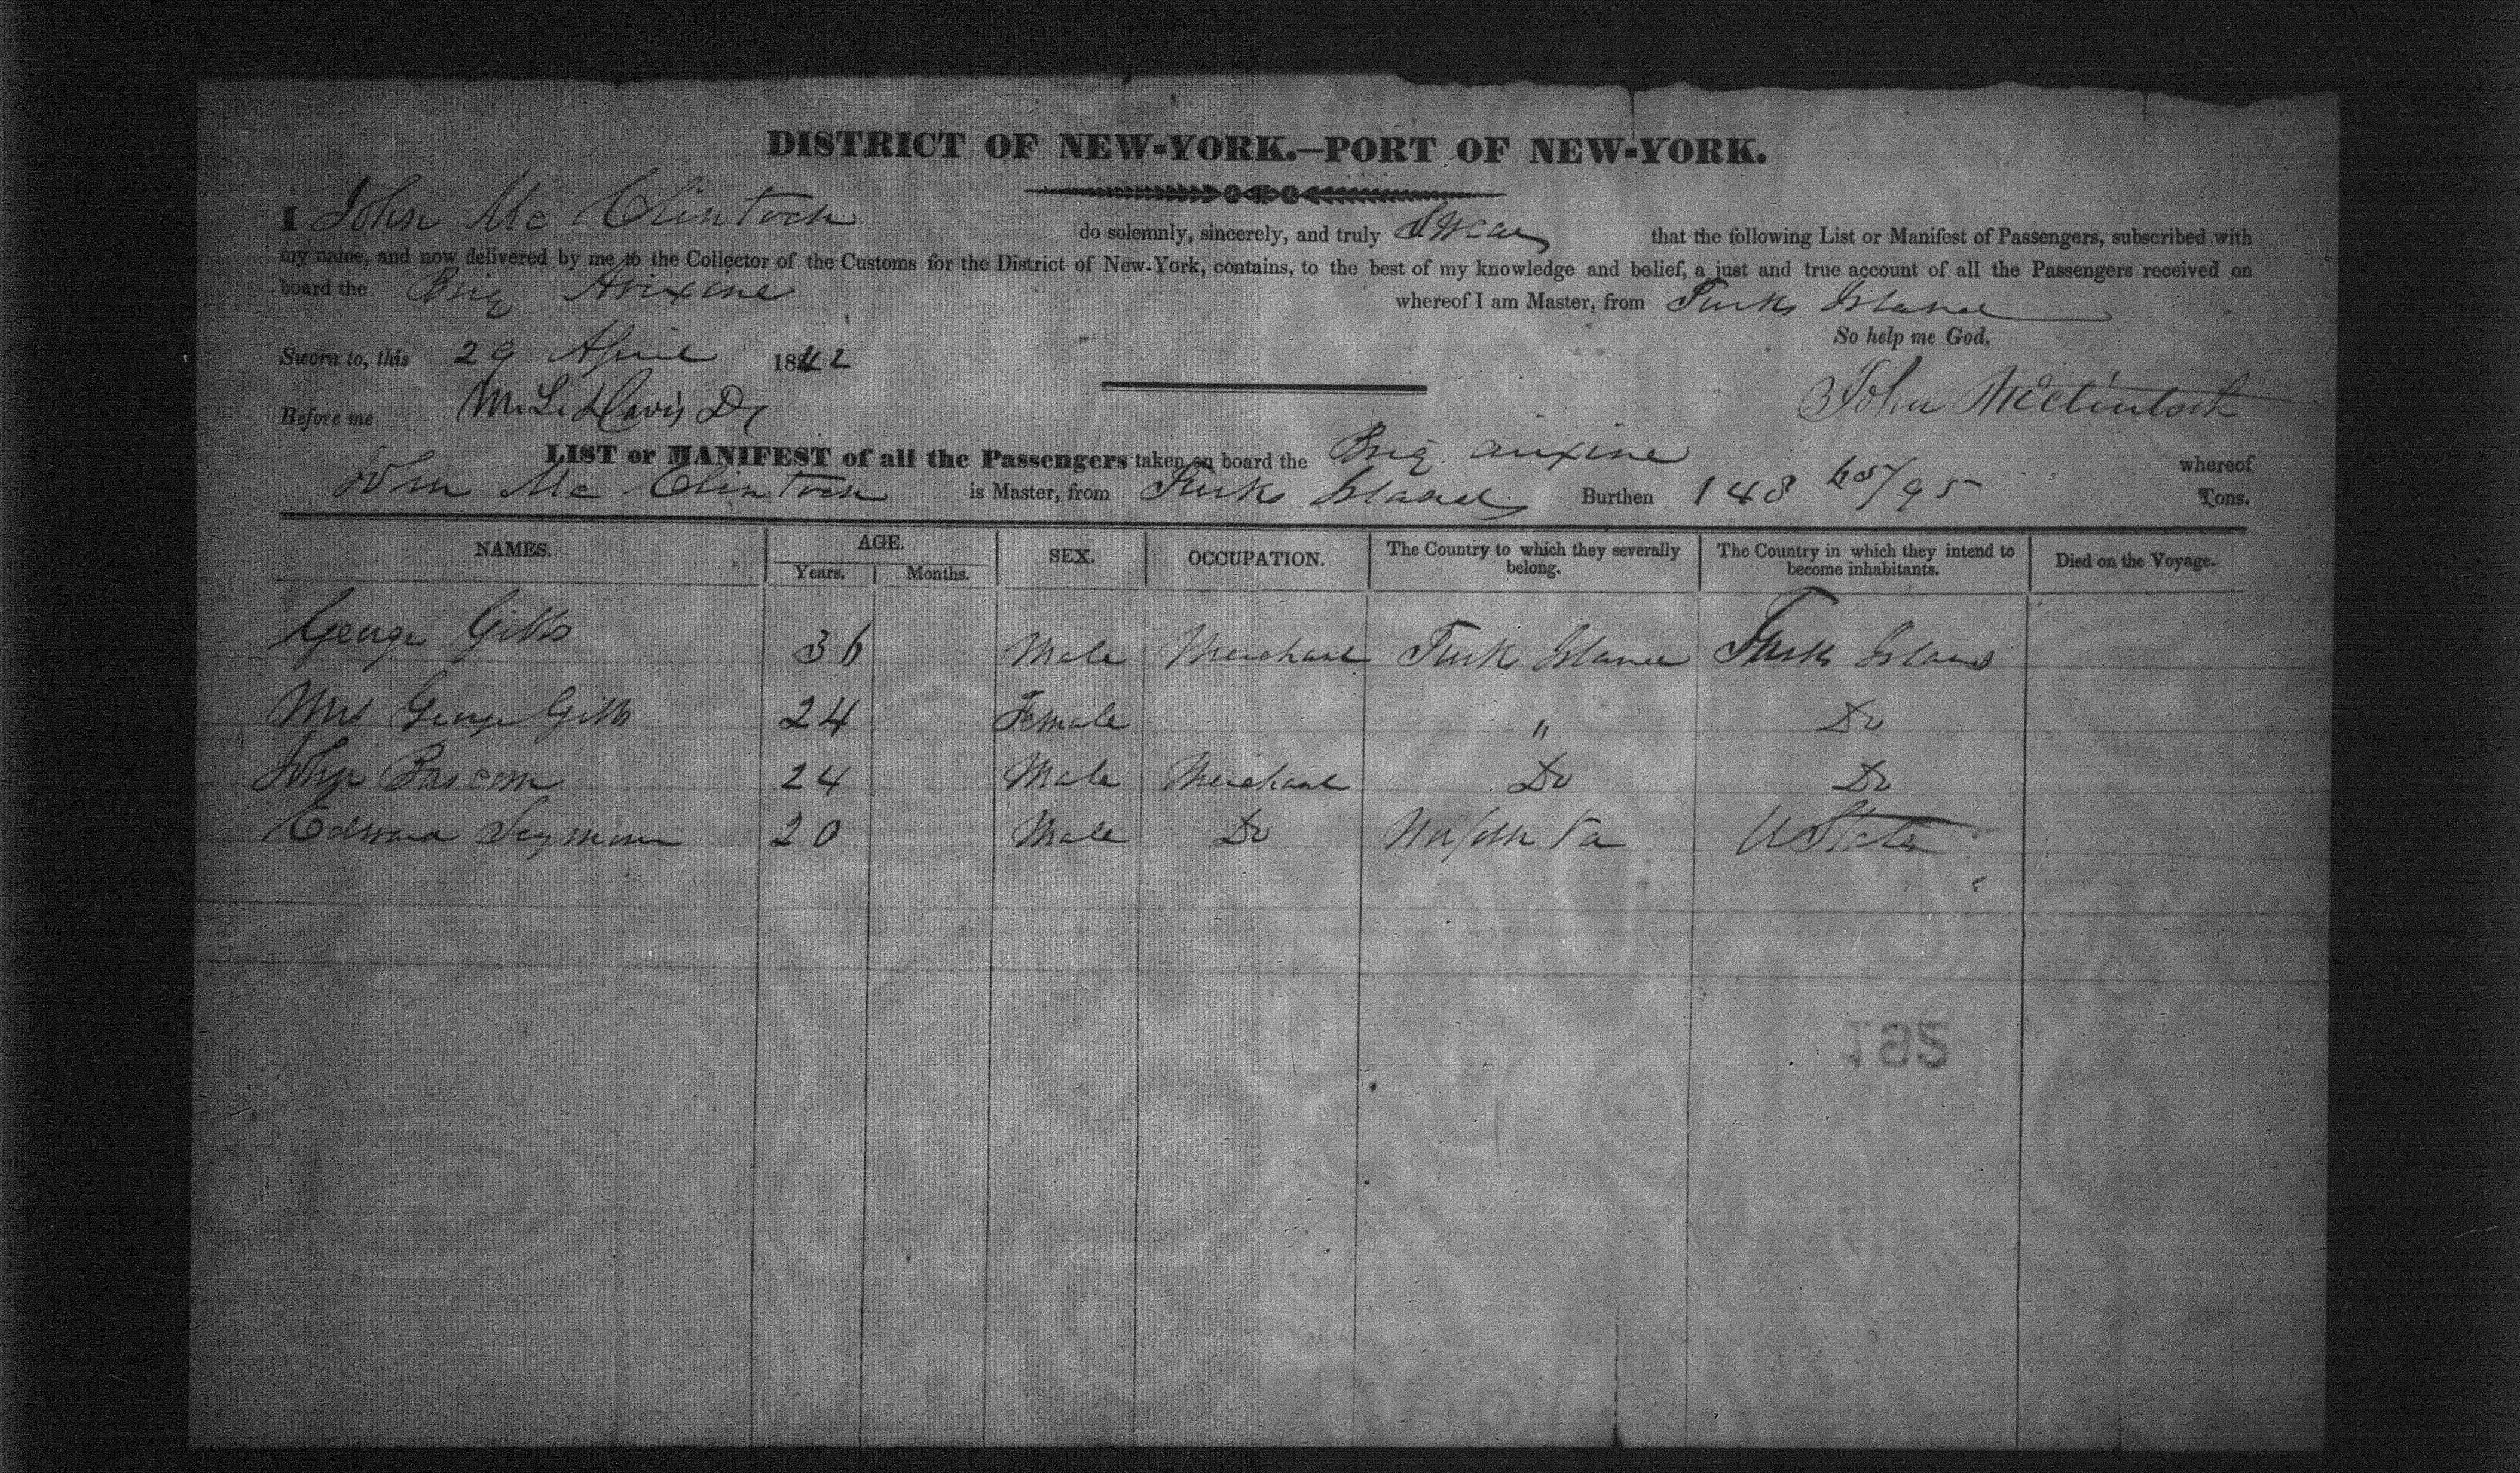 DISTRICT OF NEW-YORK.—PORT OF NEW-YORK.
I John Mc Clintock do solemnly, sincerely, and truly Swear that the following List or Manifest of Passengers, subscribed with
my name, and now delivered by me to the Collector of the Customs for the District of New-York, contains, to the best of my knowledge and belief, a just and true account of all the Passengers received on
board the Brig whereof I am Master, from Turks Island
So help me God.
Sworn to, this 29 April 1842
John McClintock
Before me M. L. Davis
LIST or MANIFEST of all the Passengers taken on board the Brig whereof
John Mc Clintock is Master, from Turks Island Burthen 148 65/95 Tons.
NAMES. AGE. SEX. OCCUPATION. The Country to which they severally belong. The Country in which they intend to become inhabitants. Died on the Voyage.
Years. Months.
George Gibbs 36 Male Merchant Turks Island Turks Island
Mrs George Gibbs 24 Female " Do
John Bascom 24 Male Merchant Do Do
Edward Seymour 20 Male Do Norfolk Va U States